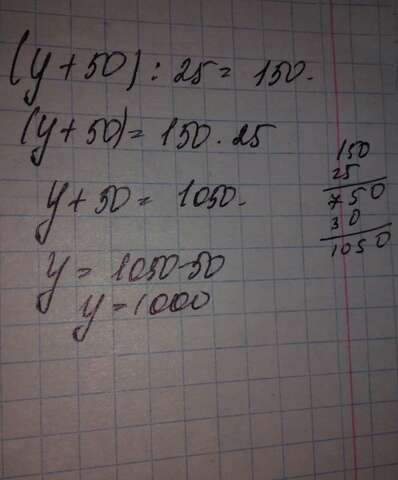 (y + 50) : 25 = 150.
(y + 50) = 150 · 25
y + 50 = 1050.
y = 1050 - 50
y = 1000
150
25
750
30
1050